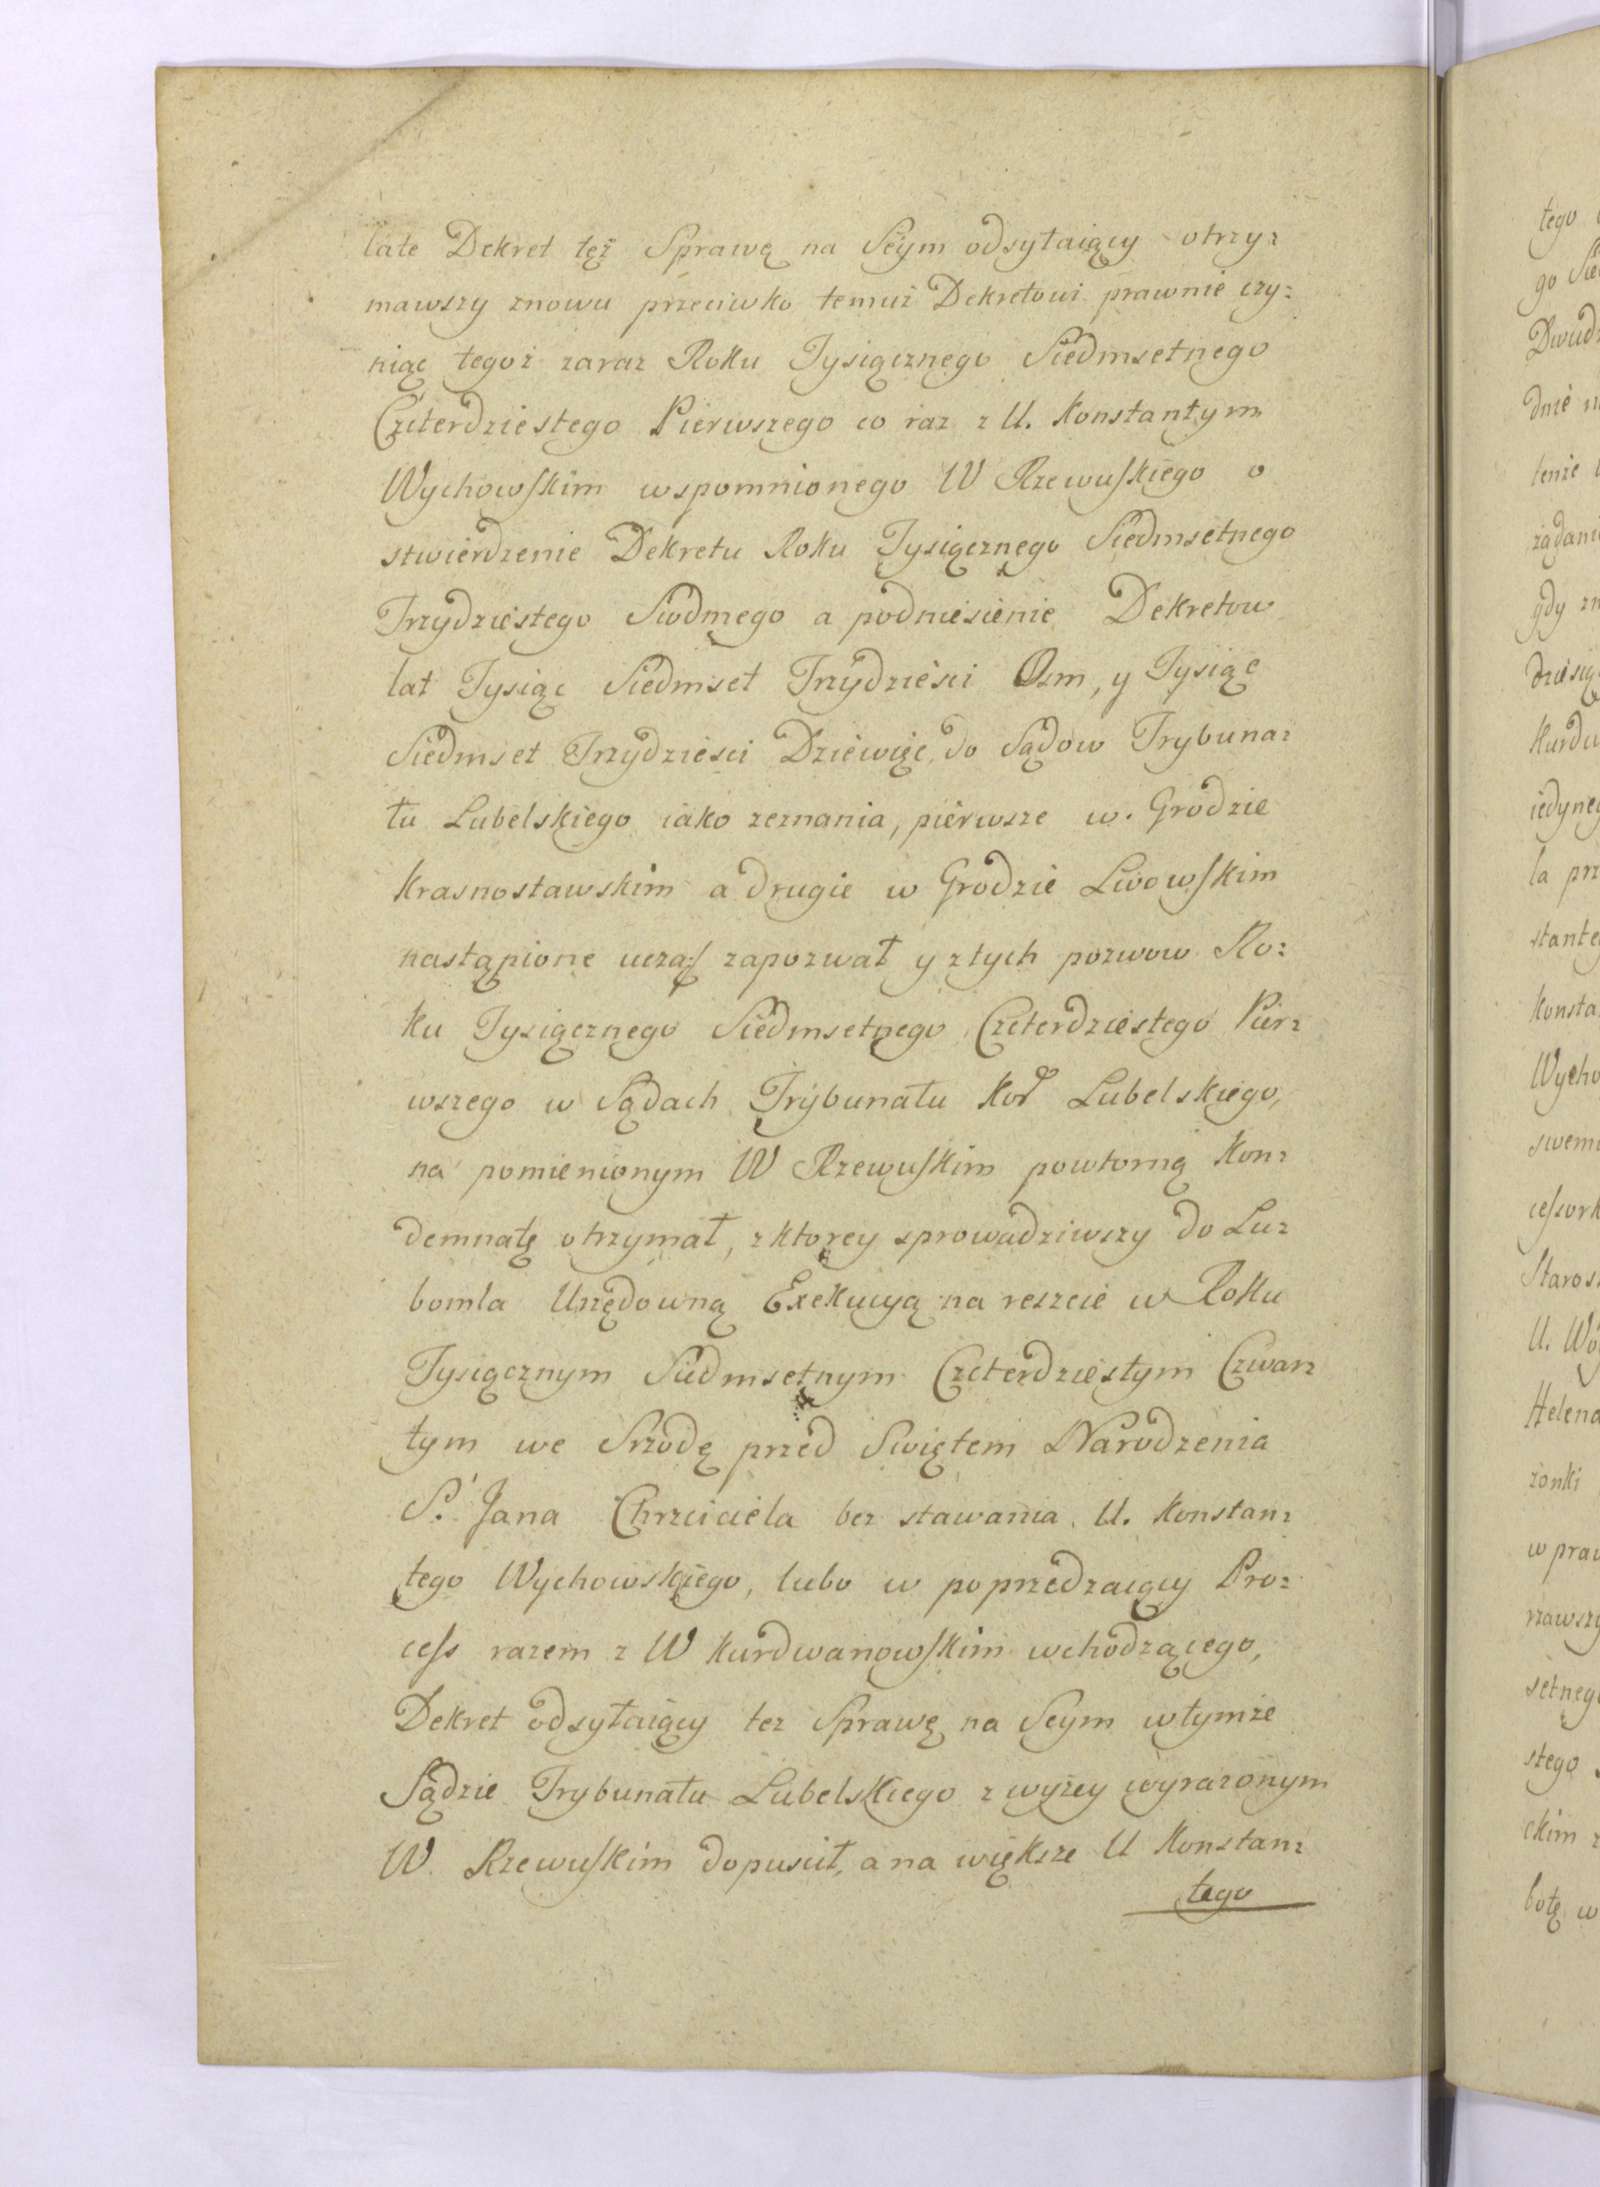 late Dekret tęż Sprawę na Seym odsyłaiący otrzy:
mawszy znowu przeciwko temuż Dekretowi prawnie czy:
niąc tegoż zaraz Roku Tysiącznego Siedmsetnego
Czterdziestego Pierwszego co raz z U. Konstantym
Wychowskim wspomnionego W Rzewuskiego o
stwierdzenie Dekretu Roku Tysiącznego Siedmsetnego
Trzydziestego Siodmego a podniesienie Dekretow
lat Tysiąc Siedmset Trzydzieści Osm, y Tysiąc
Siedmset Trzydzieści Dziewięć do Sądow Trybuna:
łu Lubelskiego iako zeznania, pierwsze w. Grodzie
Krasnostawskim a drugie w Grodzie Lwowskim
nastąpione zapozwał y z tych pozwow Ro:
ku Tysiącznego Siedmsetnego Czterdziestego Pier:
wszego w Sądach Trybunału Koŕ Lubelskiego,
na pomienionym W Rzewuskim powtorną Kon:
demnatę otrzymał, z ktorey sprowadziwszy do Lu:
bomla Urzędowną Exekucyą na reszcie w Roku
Tysiącznym Siedmsetnym Czterdziestym Czwar:
tym we Srzodę przed Swiętem Narodzenia
S. Jana Chrzciciela bez stawania U. Konstan:
tego Wychowskiego, lubo w poprzedzaiący Pro:
cess razem z W Kurdwanowskim wchodzącego,
Dekret odsyłaiący też Sprawę na Seym w tymże
Sądzie Trybunału Lubelskiego z wyżey wyrażonym
W. Rzewuskim dopuścił, a na większe U Konstan:
tego